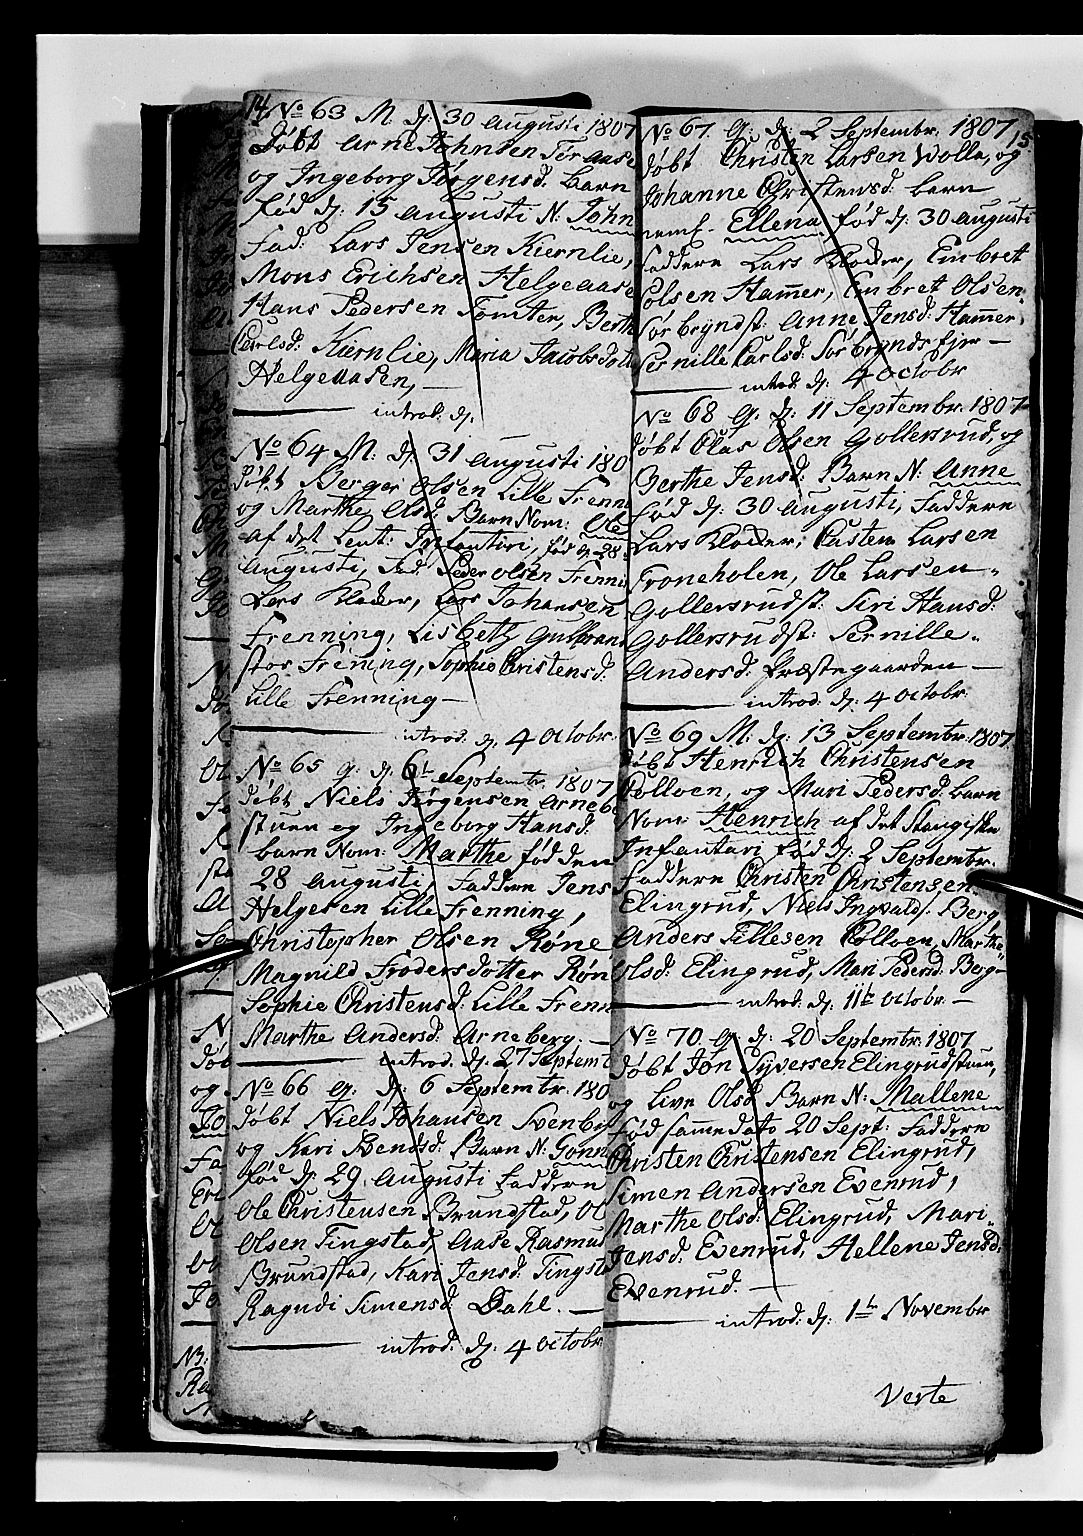 14
No 63 M. dj: 30 augusti 1807
døbt Arne Johnsen Toraase
og Ingeborg Jørgensd: Barn
fød dj: 15 augusti N: John
Fad: Lars Jensen Kiernlie,
Mons Erichsen Helgeaase
Hans Pedersen Tomter, Berthe
Carlsd: Kiernlie, Maria Jacobsdott
Helgeaasen, —
introd: dj:
No 64 M: dj 31 augusti 180
døbt Berger Olsen Lille Frenn
og Marthe Olsd: Barn Nom: Ole
af det Lent: Infantiri, fød dj 28
augusti, Fad: Peder Olsen Frenni
Lars Klocker, Lars Johansen
Frenning, Lisbeth Gulbrand
stor Frening, Sophie Christensd:
Lille Frenning —
introd: dj: 4 Octobr:
No 65 q: dj 6t Septembr. 1807
døbt Niels Jørgensen Arnebe
stuen og Ingeborg Hansd:
barn Nom: Marthe fød den
28 augusti, Faddere Jens
Helgesen Lille Frenning,
Christopher Olsen Røne
Magnild Frodersdotter Røn
Sophie Christensd: Lille Frenn
Marthe Andersd: Arneberg. —
introd: dj: 27 Septemb
No 66 q: dj: 6 Septembr: 180
døbt Niels Johansen Svenby
og Kari Svendsd: Barn N: Gonn
fød dj: 29 augusti Faddere
Ole Christensen Brundstad, Ol
Olsen Tingstad, Aase Rasmus
Brundstad, Kari Jensd: Tingst
Ragndi Simensd: Dahl. —
introd: dj: 4 Octobr:
15
No 67. q: dj: 2 Septembr. 1807
døbt Christen Larsen Wolla, og
Johanne Christensd: barn
nemf. Ellena fød dj: 30 augusti
Faddere Lars Klocker, Embret
Colsen Hamer, Embret Olsen
Sørbryndst: Anne Jensd: Hamer
Pernille Carlsd: Sørbryndsejer —
introd: dj: 4 Octobr
No 68 q: dj: 11 Septembr. 1807
døbt Olas Olsen Gollersrud, og
Berthe Jensd: Barn N: Anne
fød dj: 30 augusti, Faddere
Lars Klocker, Casten Larsen
Troneholen, Ole Larsen
Gollersrudst: Siri Hansd:
Gollersrudst: Pernille
Andersd: Præstegaarden —
introd: dj: 4 Octobr:
No 69 M. dj: 13 Septembr. 1807.
døbt Henrich Christensen
Colloen, og Mari Pedersd: Barn
Nom: Henrich af det Stangiske
Infantari fød dj: 2 Septembr.
Faddere Christen Christensen
Elingrud, Niels Ingvalds. Berg,
Anders Tillesen Colloen, Marthe
Olsd: Elingrud, Mari Pedersd: Berg —
introd: dj: 11te Octobr. —
No 70. q dj: 20 Septembr. 1807
døbt Jon Syversen Elingrudstuen,
og Live Olsd Barn N: Mallene
fød samme dato 20 Sept: Faddere
Christen Christensen Elingrud,
Simen Andersen Evenrud,
Marthe Olsd: Elingrud, Mari
Jensd: Evenrud, Hellene Jensd:
Evenrud. —
introd: dj: 1te Novembr
Verte